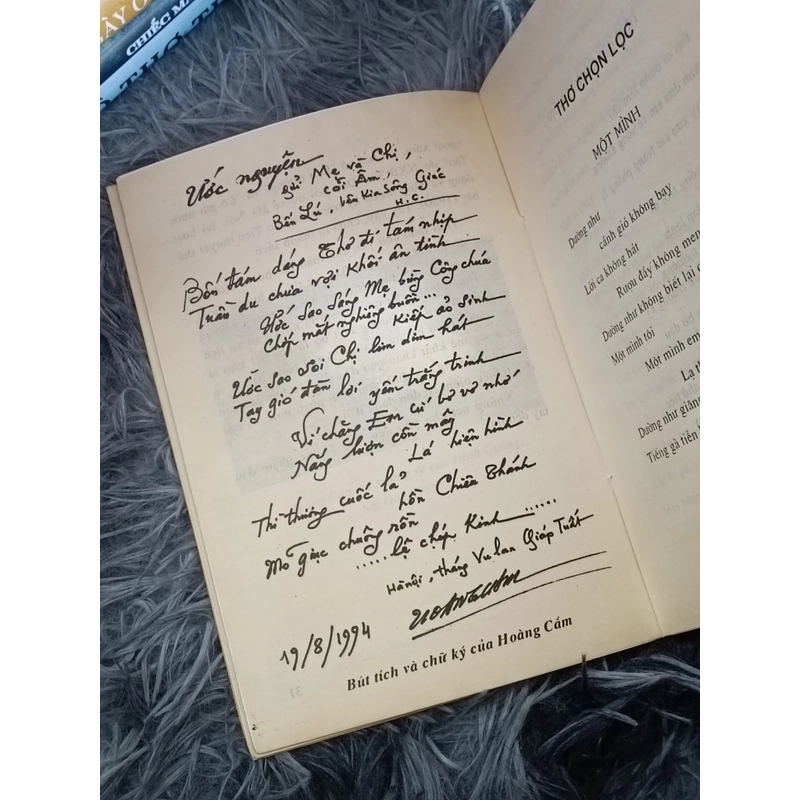 ÀY O
CHIẾC MA
Ước nguyện
gửi Mẹ và Chị,
cõi Âm,
Bến Lú, bên kia sông Giác
H.C.
Bốn tám dáng Thơ đi tám nhịp
Tuần du chưa vợi Khối ân tình
Ước sao sáng Mẹ bừng Công chúa
Chớp mắt nghiêng buồn... Kiếp ảo sinh
Ước sao soi Chị lim dim hát
Tay gió đàn lơi yếm trắng trinh
Ví chăng Em cứ bơ vơ nhớ
Nắng lượn cồn mây Lá hiện hình
Thì thương cuốc lạ? hồn Chiêu Thánh
Mõ giục chuông rền ......
..... lệ chép Kinh
Hànội, tháng Vu lan Giáp Tuất
19/8/1994
Bút tích và chữ ký của Hoàng Cầm
31
THƠ CHỌN LỌC
MỘT MÌNH
Dường như
cánh gió không bay
Lời ca không hát
Rượu đầy không men
Dường như không biết lại
Một mình tôi
Một mình em
Lạ th
Dường như giăng
Tiếng gà tiễn